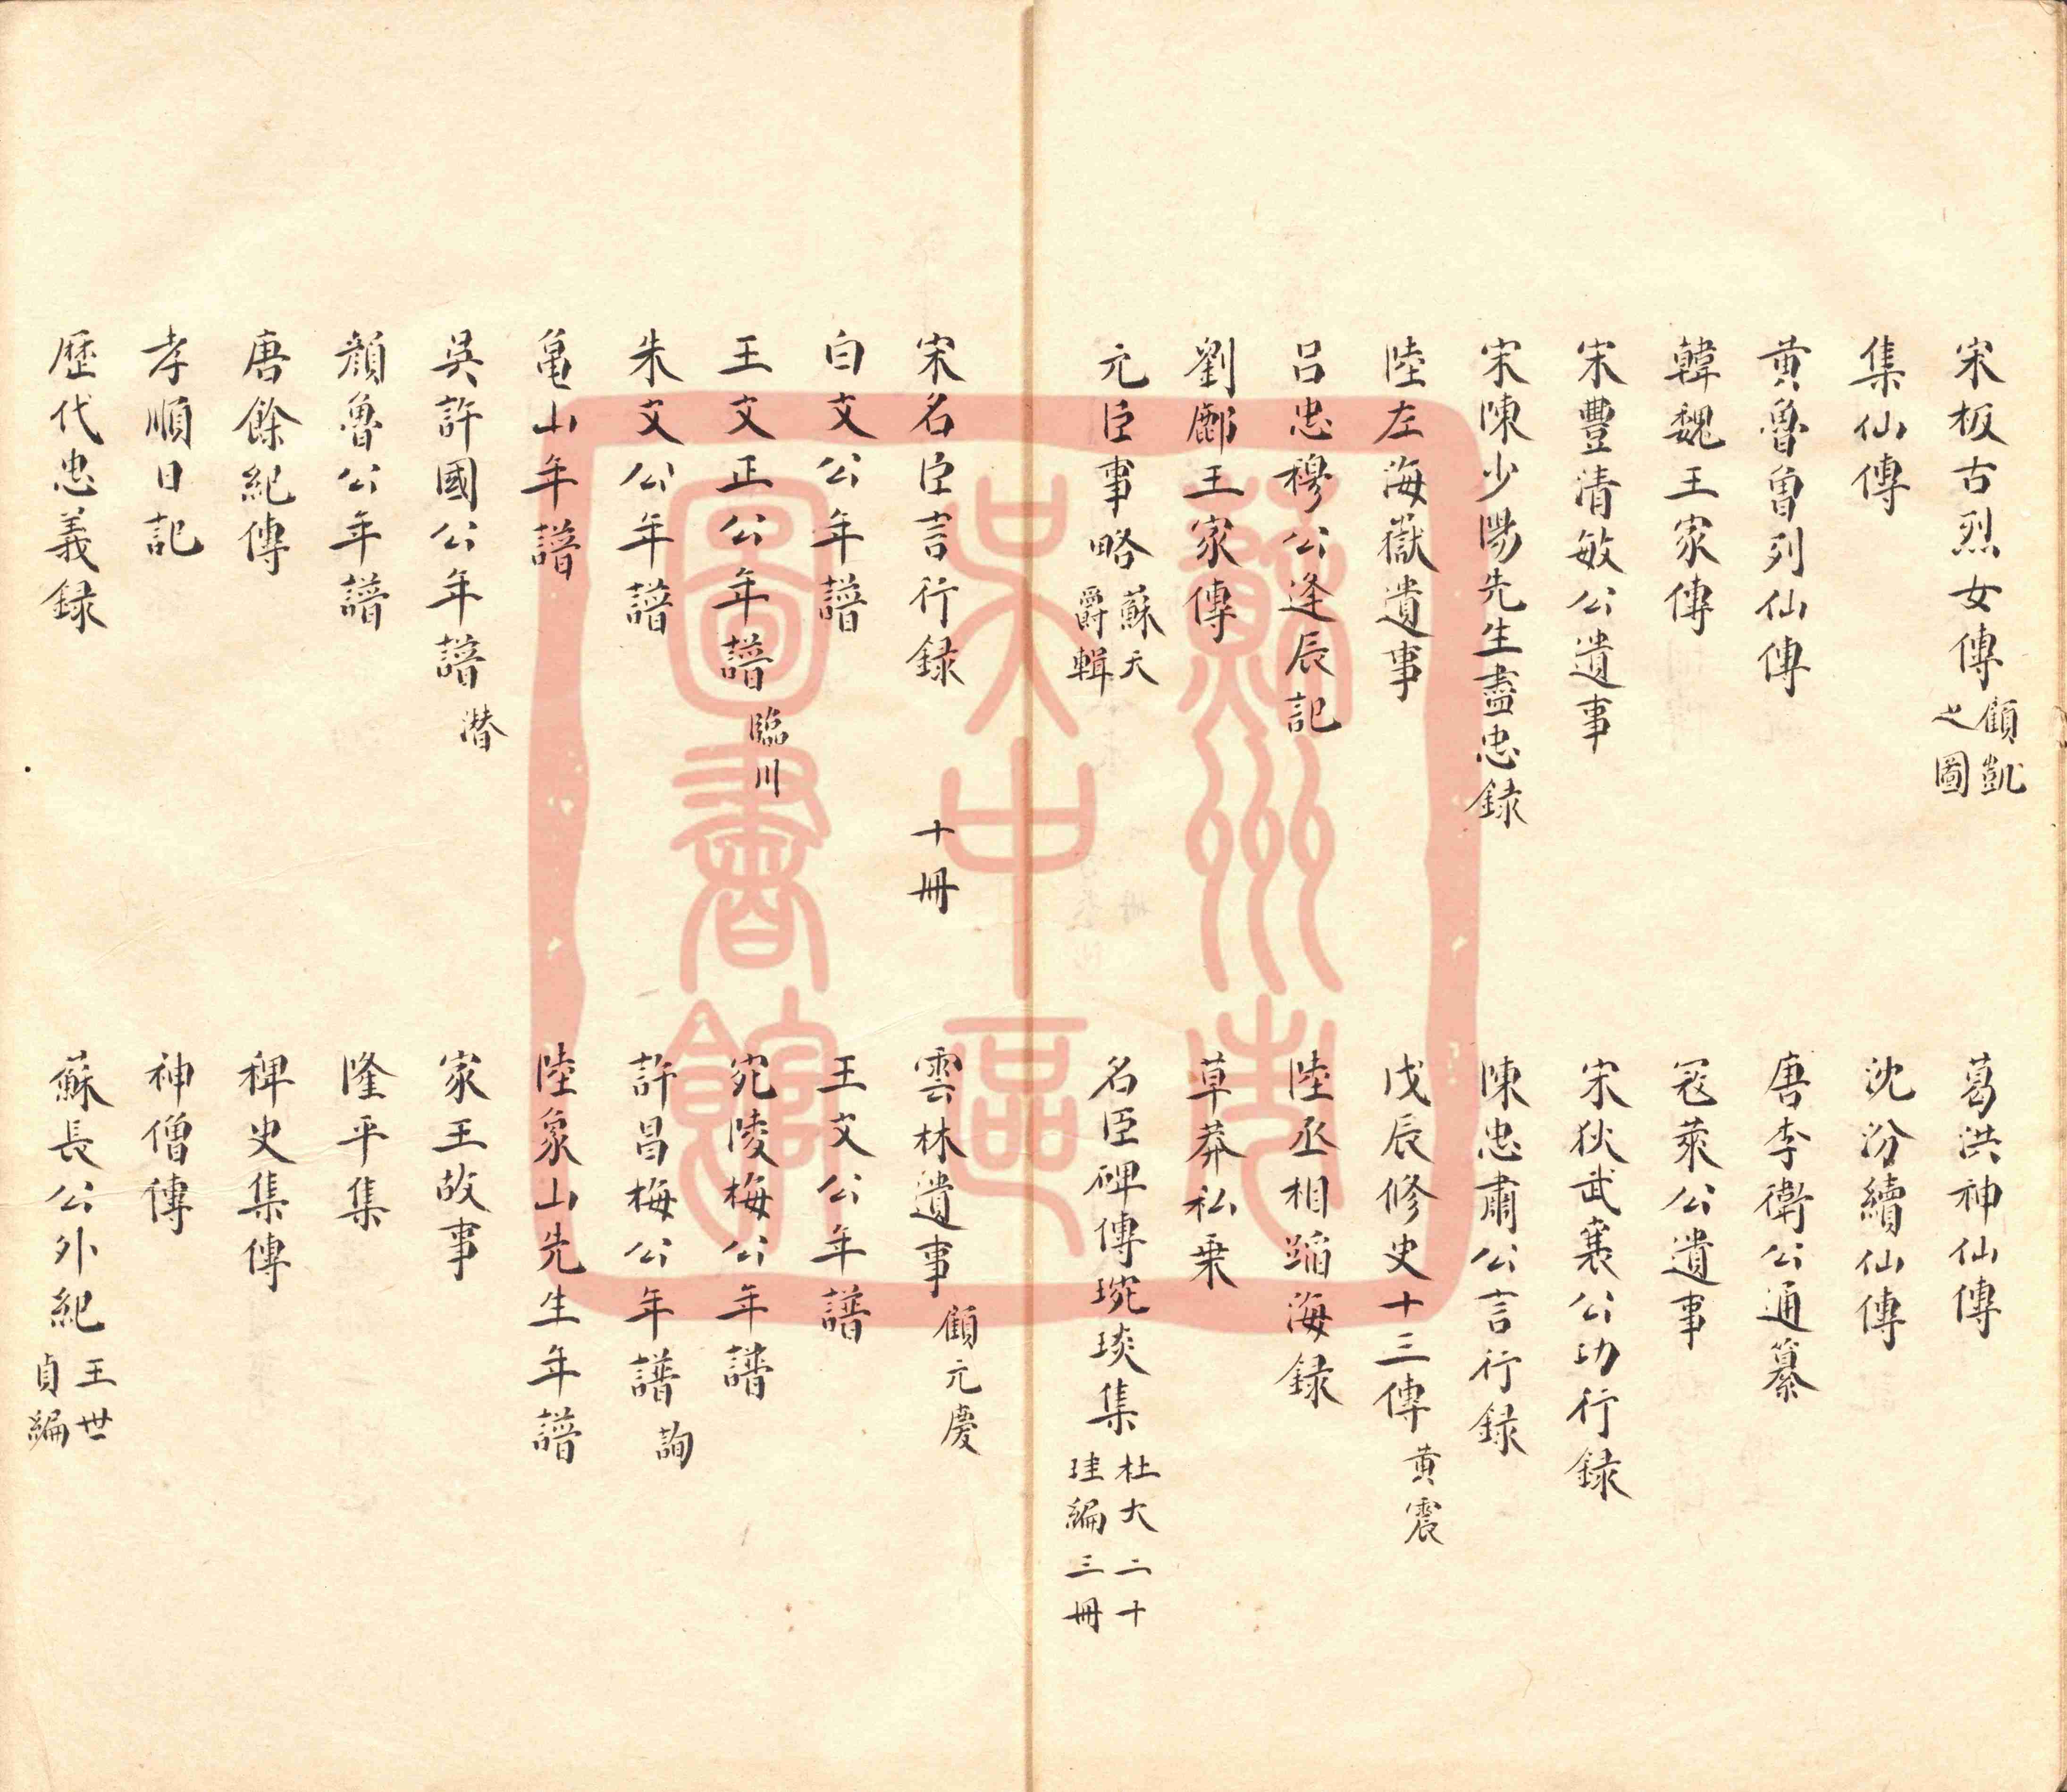 宋板古烈女傳 顧凱之圖
葛洪神仙傳
集仙傳
沈汾續仙傳
黃魯曾列仙傳
唐李衛公通纂
韓魏王家傳
冦萊公遺事
宋豐清敏公遺事
宋狄武襄公功行録
宋陳少陽先生盡忠録
陳忠肅公言行録
陸左海嶽遺事
戊辰修史十三傳 黃震
呂忠穆公逢辰記
陸丞相蹈海録
劉鄜王家傳
草莽私乗
元臣事略 蘇天爵輯
名臣碑傳琬琰集 杜大珪編 二十三冊
宋名臣言行録 十冊
雲林遺事 顧元慶
白文公年譜
王文公年譜
王文正公年譜 臨川
宛陵梅公年譜
朱文公年譜
許昌梅公年譜 詢
亀山年譜
陸象山先生年譜
吳許國公年譜 潛
家王故事
顏魯公年譜
隆平集
唐餘紀傳
稗史集傳
孝順日記
神僧傳
歷代忠義録
蘇長公外紀 王世貞編
蘇州市
吳中區
圖書館